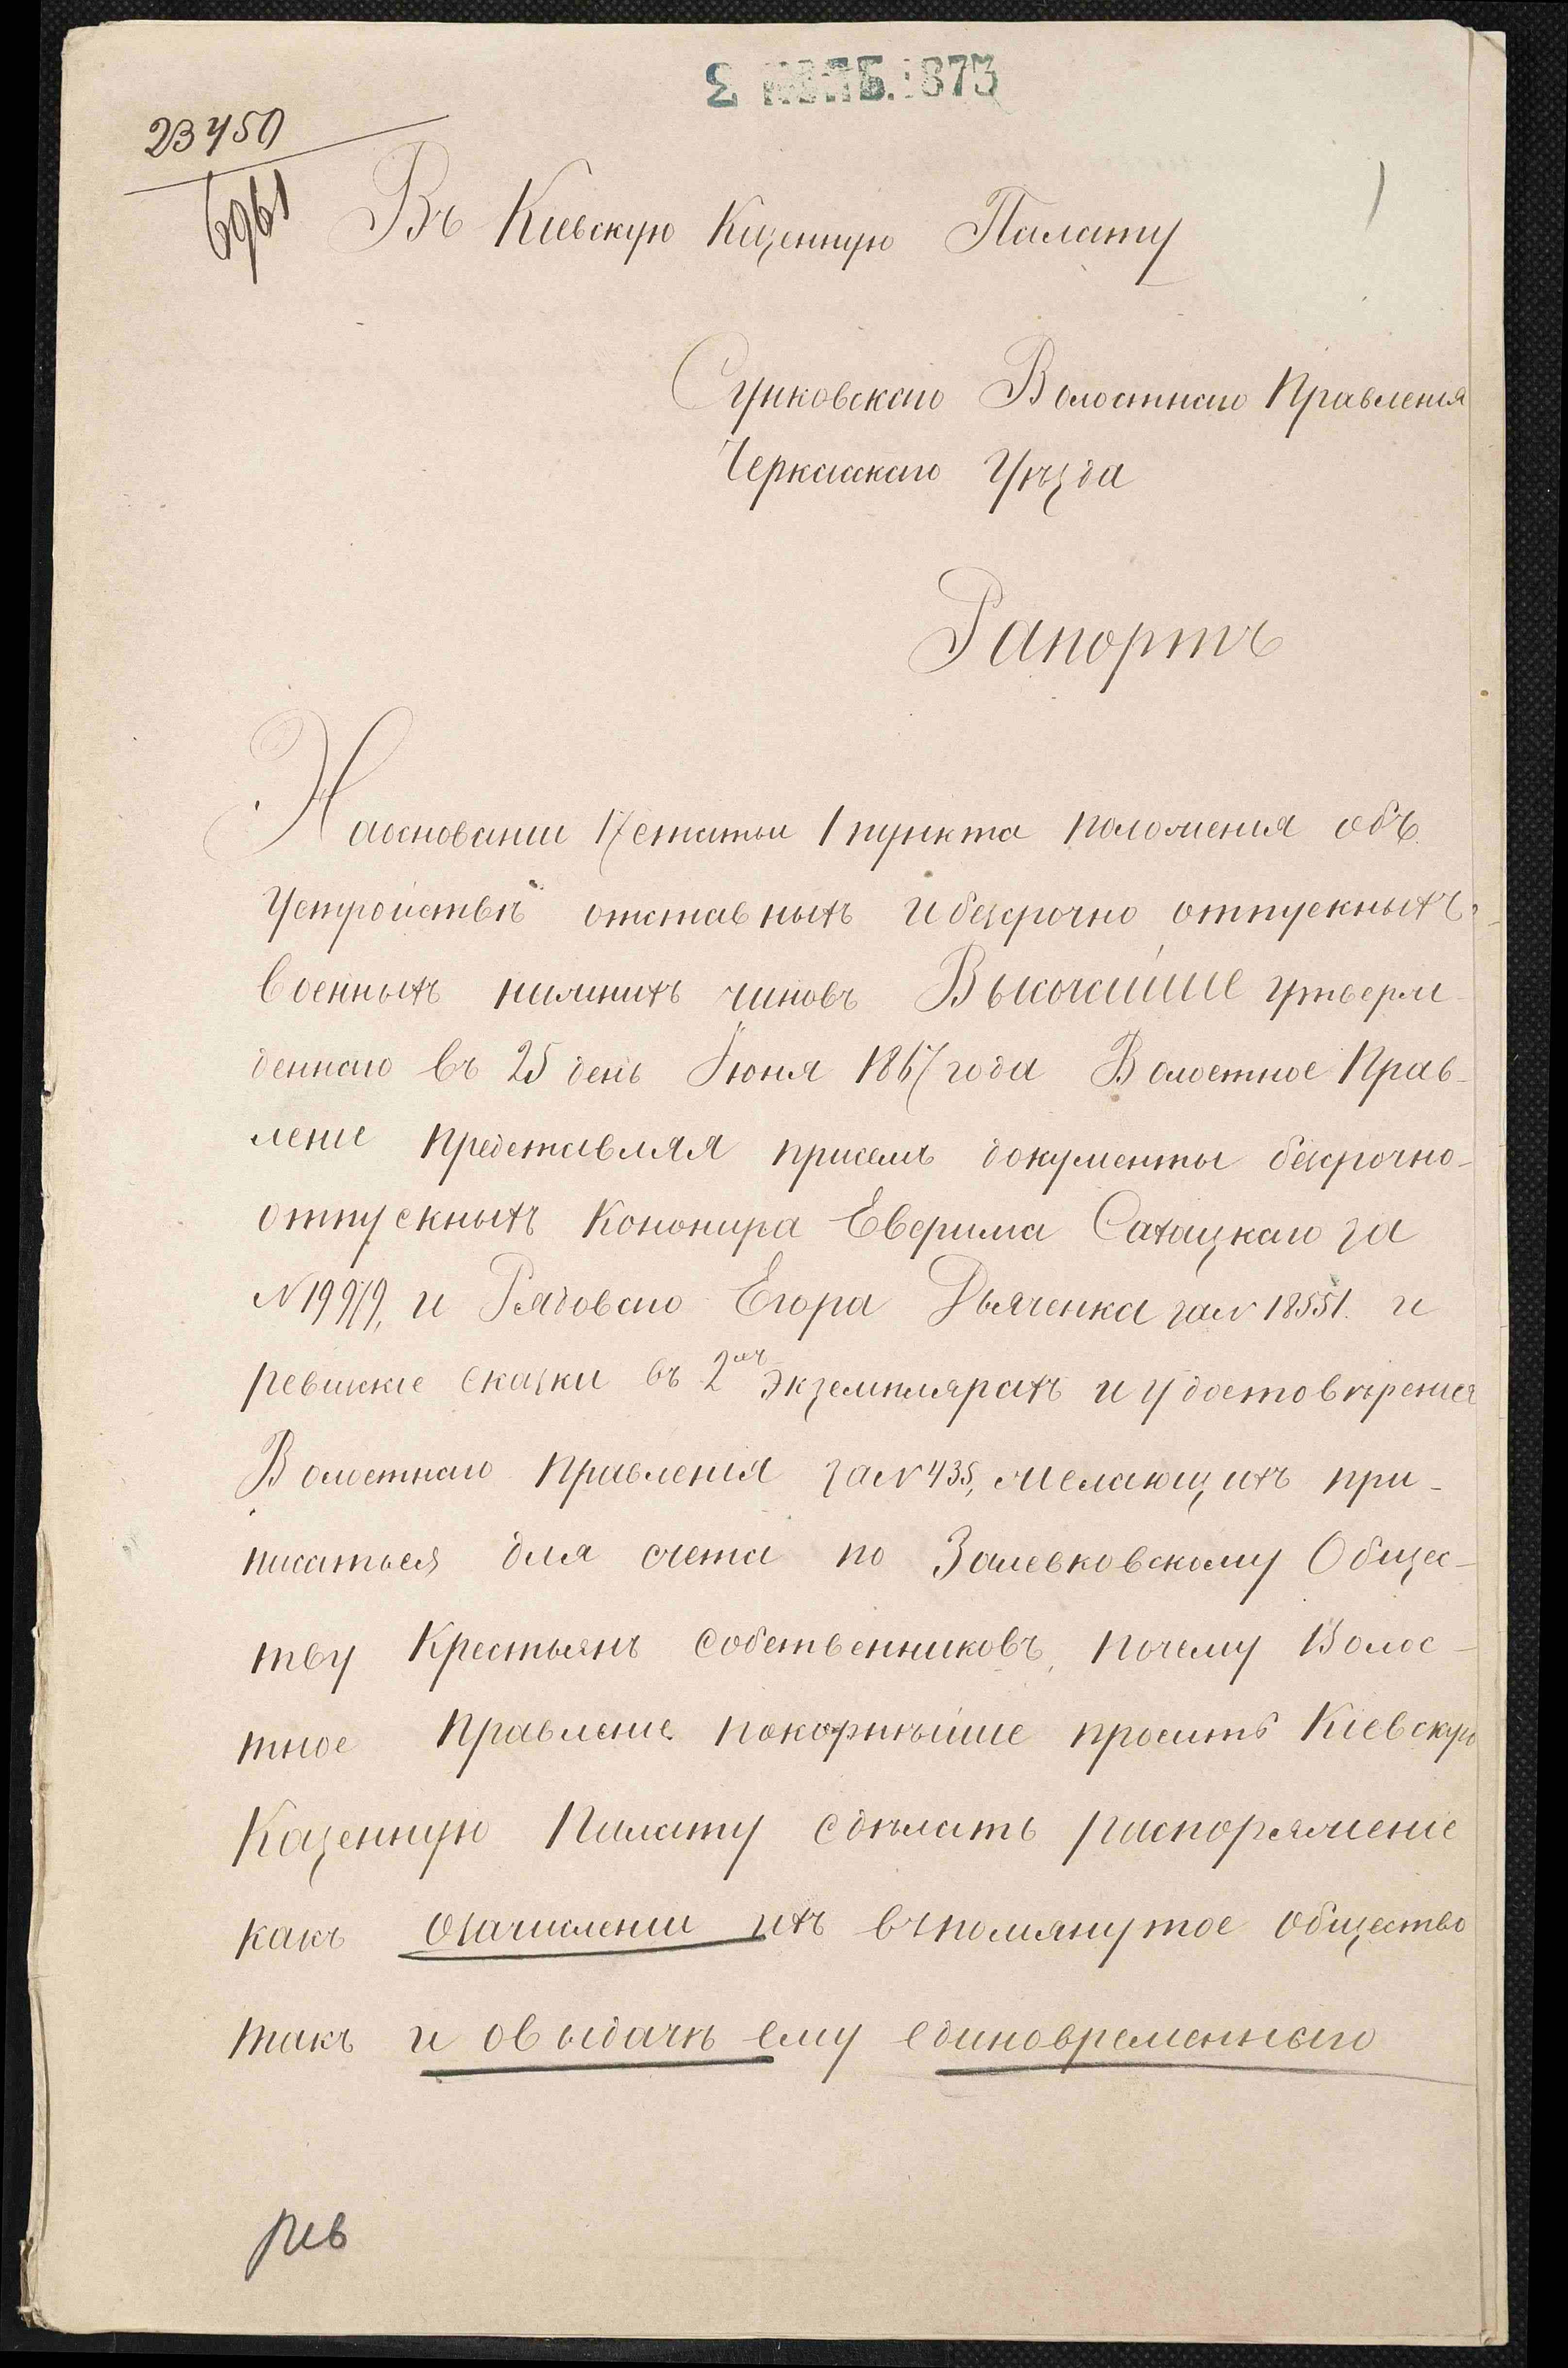 1873
23450
6961
Въ Кіевскую Казенную Палату
Сунковскаго Волостнаго Правленія
Черкаскаго Уѣзда
Рапортъ
На основаніи 17 статьи 1 пункта положенія объ
Устройствѣ отставныхъ и безсрочно отпускныхъ
военныхъ нижнихъ чиновъ Высочайше утверж
деннаго въ 25 день Іюня 1867 года Волостное Прав-
леніе представляя присемъ документы безсрочно-
отпускныхъ Кононира Еверима Сахацкаго за
№ 19979, и Рядоваго Егора Дьяченка за № 18551. и
ревизкіе сказки въ 2хъ экземплярахъ и удостовѣренія
Волостнаго Правленія за № 435, желающихъ при-
писаться для счета по Залевковскому Общес-
тву Крестьянъ собственниковъ, почему Волос-
тное Правленіе покорнѣйше проситъ Кіевскую
Казенную Палату сдѣлать распоряженіе
какъ озачисленіи ихъ въ помянутое общество
такъ и овыдачѣ ему единовременнаго